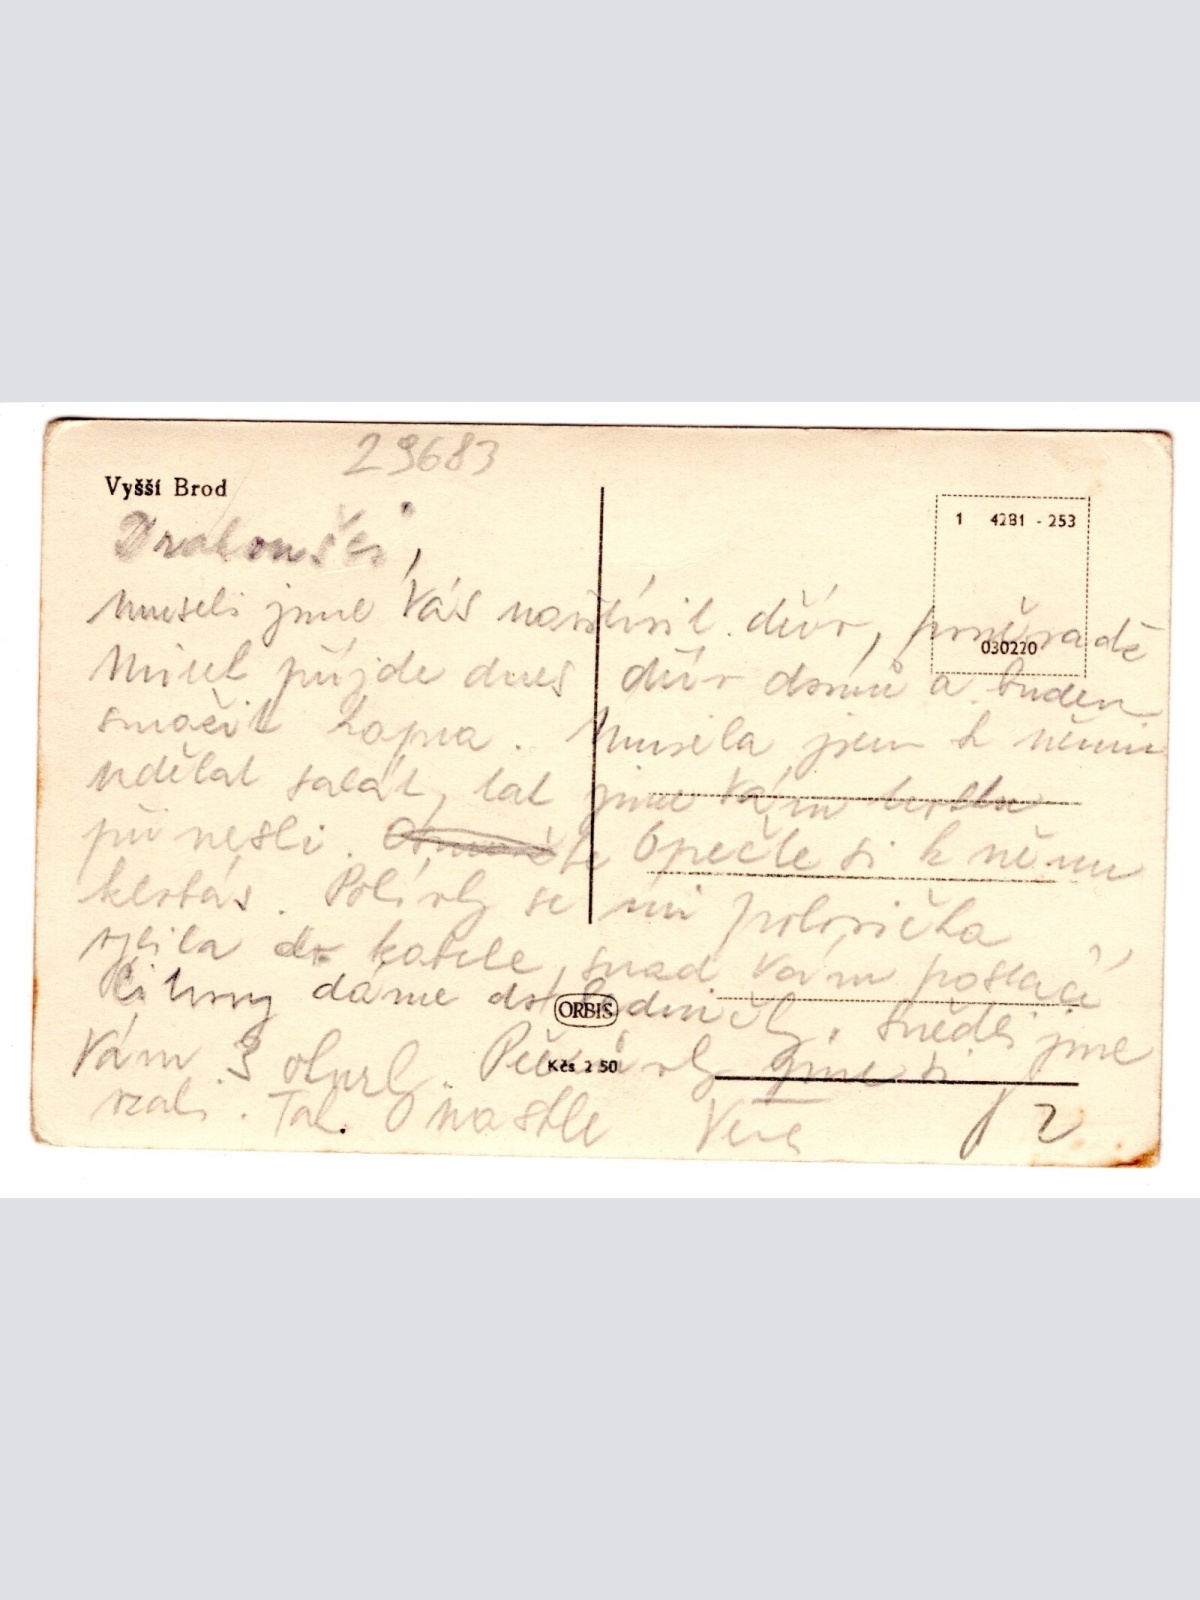 29683
Vyšší Brod
1 4281 - 253
030220
Drahoušci,
Museli jsme Vás navštívit dřív, poněvadž
Mirek půjde dnes dřív domů a budem
smažit kapra. Musela jsem k němu
udělat salát, tak jsme Vám trošku
přinesli. Opečte si k němu
klobás. Polívky se mi polovička
vylila do kabele, snad Vám postačí,
dáme do ledničky, snědli jsme
Vám 3 jsme si
vzali. Tak nashle Věra
2
ORBIS
Kčs 2 50